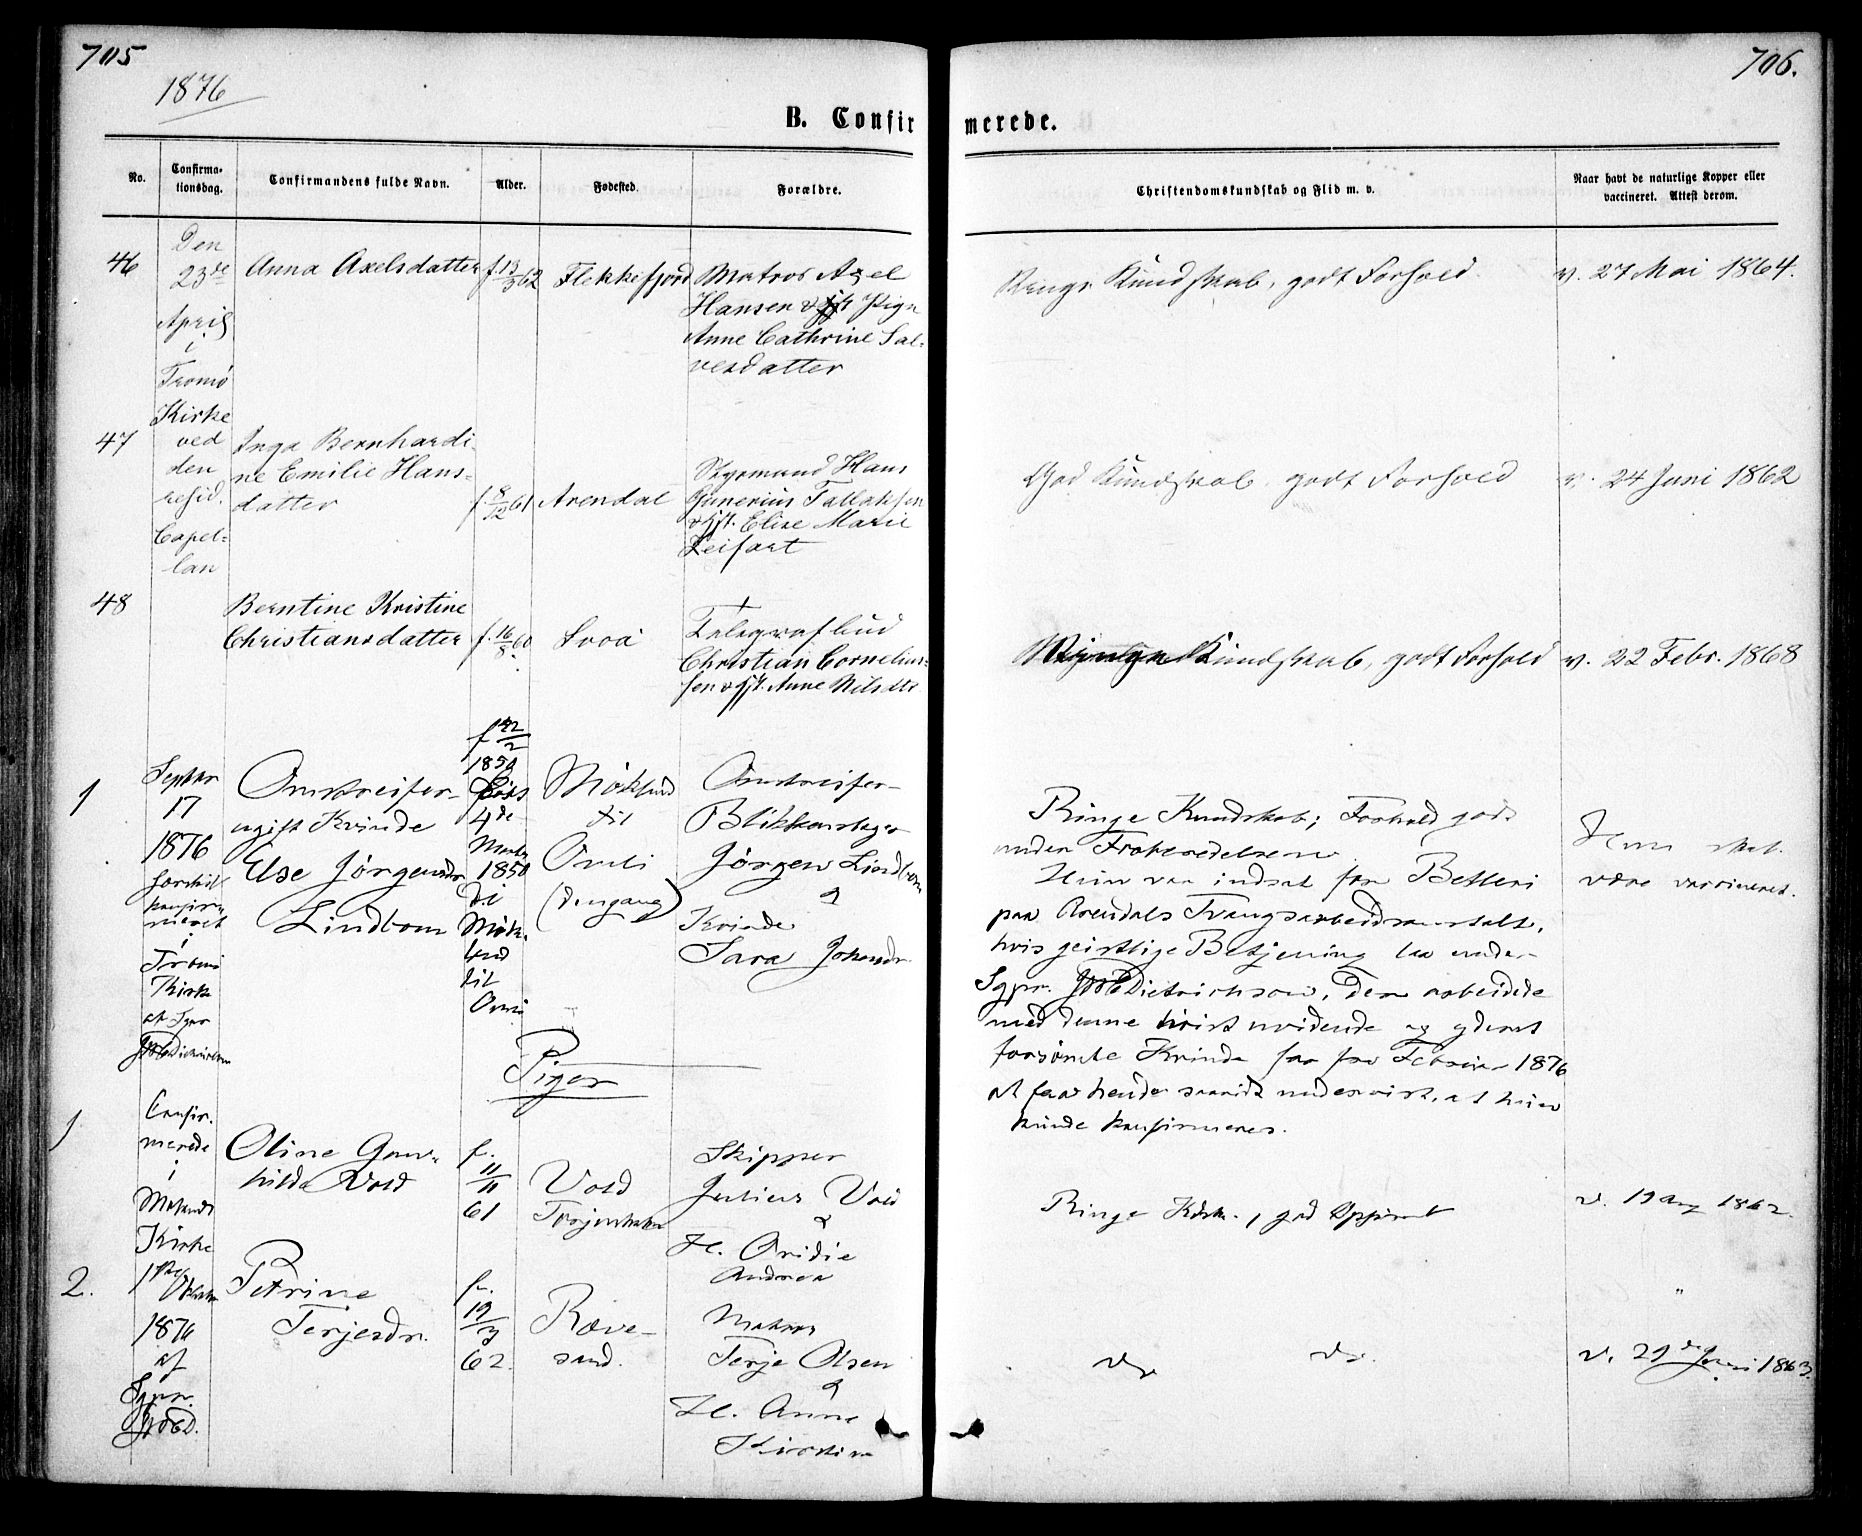 705
706.
1876
B. Confirmerede.
No.
Confirmationsdag.
Confirmandens fulde Navn.
Alder.
Fødested.
Forældre.
Christendomskundskab og Flid m. v.
Naar havt de naturlige Kopper eller
vaccineret. Attest derom.
46
Den
23de
April
i
Tromø
Kirke
ved
den
resid.
Capel-
lan
Anna Axelsdatter
f. 13/3 62
Flekkefjord
Matros Axel
Hansen & Pige
Anne Cathrine Sal-
vesdatter
Kundskab, godt Forhold
v. 27 Mai 1864.
47
Inga Bernhardi-
ne Emilie Hans-
datter
f. 8/12 61
Arendal
Styrmand Hans
Gunerius Tallaksen
& Hst. Elise Marie
Leifart
God Kundskab, godt Forhold
v. 24 Juni 1862
48
Berntine Kristine
Christiansdatter
f. 16/8 60
Telegrafbud
Christian Cornelius-
sen & Hst. Anne Nilsdtr
Kundskab, godt Forhold
v. 22 Febr. 1868
1
Septbr
17
1876
konfir-
meret
i
Tromø
Kirke
af Sgpr
Omstreifer-
ugift Kvinde
Else Jørgensdr
Lindbom
1850
4de
1850
til
Omli
til
Omli
(dengang)
Omstreifer-
Blikkenslager
Jørgen Lindbom
&
Kvinde
Sara Johansdr
Ringe Kundskab; Forhold godt
under Forberedelsen
Hun var indsat for Betleri
paa Arendals Tvangsarbeidsanstalt,
hvis geistlige Betjening laa under
Sgpr. Dietrichson, der arbeidede
med denne uvidende og yderst
forsømte Kvinde fra Februar 1876
at faa hende saavidt undervist, at hun
kunde konfirmeres.
Hun skal
være vaccineret.
Piger
1
Confir-
merede
i
Kirke
1ste
Oktober
1876
af
Sgpr.
Oline Gun-
hilda Vold
f.
11/11
61
Vold
Skipper
Julius Vold
&
H. Ovidie
Andrea
Ringe Kdsk., god
v. 19 Aug 1862.
2.
Petrine
Terjesdr.
f.
19/3
62.
Ræve-
sand.
Matros
Terje Olsen
&
H. Anne
Kirstine
do
do.
"